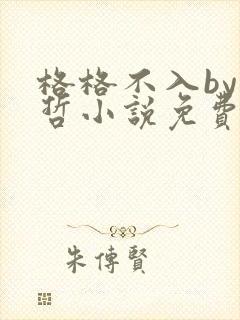 格格不入by
哲小說免費
朱傳賢